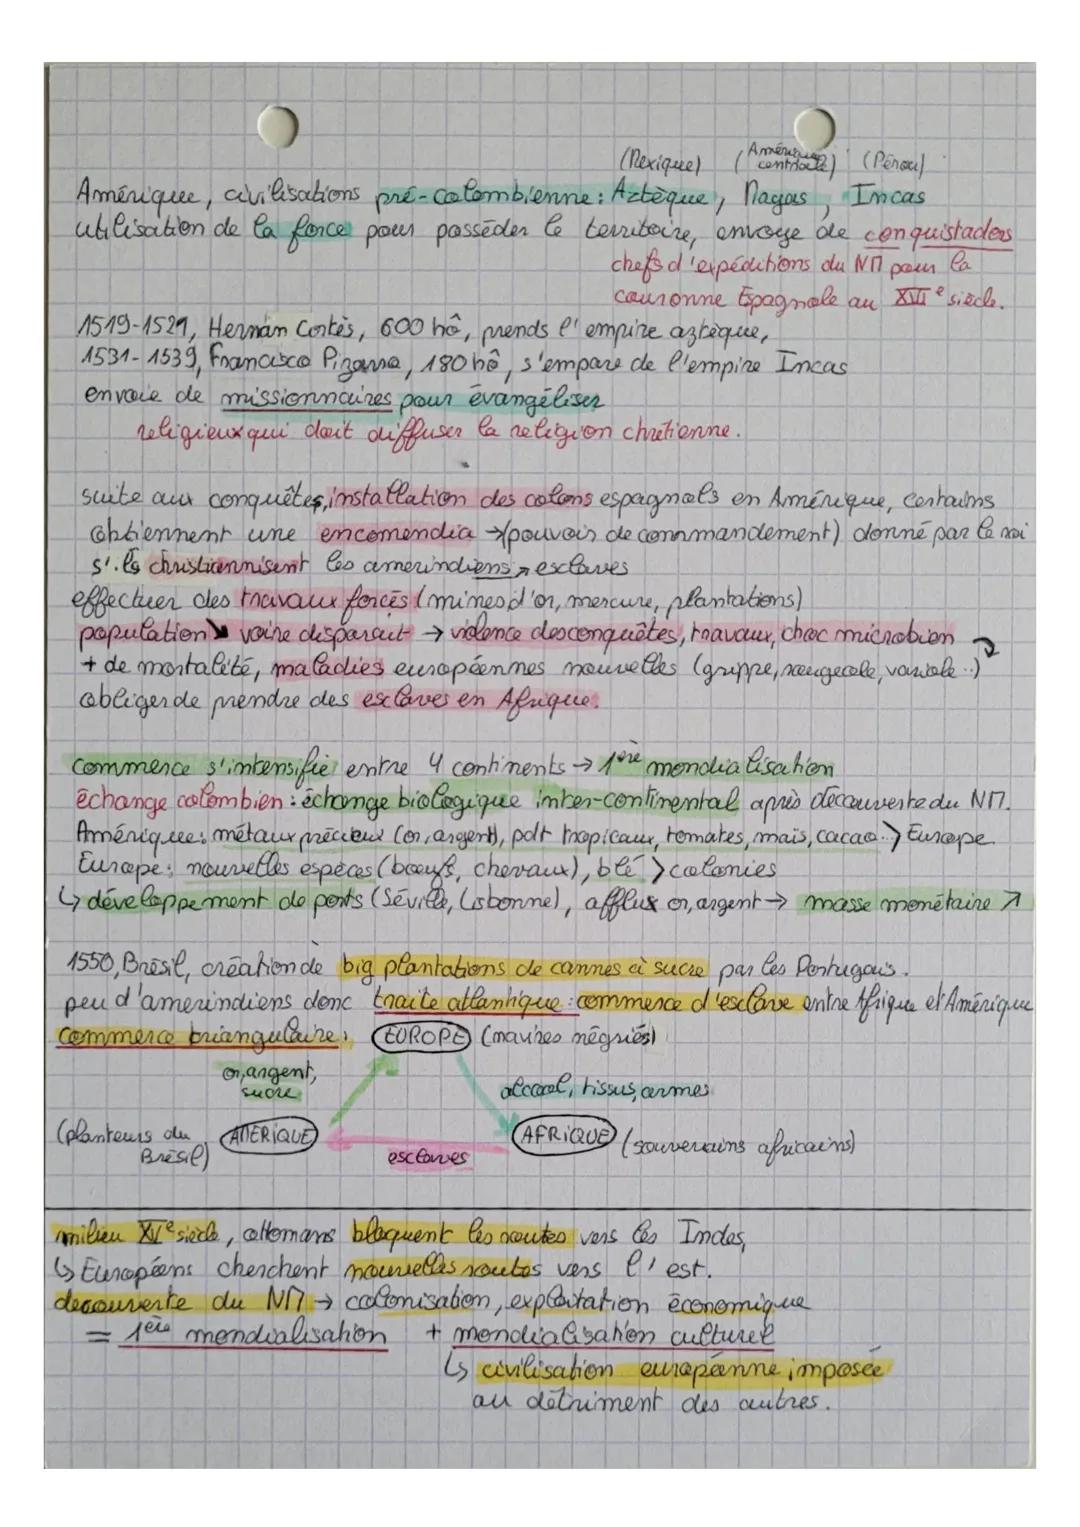 (Mexique) (Amérique centrale) (Pérou)
Amérique, civilisations pré-colombienne : Aztèque, Mayas, Incas
utilisation de la force pour posséder le territoire, envoye de conquistadors
chefs d'expéditions du NM pour la
couronne Espagnole au XVIe siècle.
1519-1521, Hernán Cortès, 600 hô, prends l'empire aztèque,
1531-1539, Francisco Pizarro, 180 hô, s'empare de l'empire Incas
envoie de missionnaires pour évangéliser
religieux qui doit diffuser la religion chrétienne.
suite aux conquêtes, installation des colons espagnols en Amérique, certains
obtiennent une encomendia → (pouvoir de commandement) donné par le roi
s'ils christiannisent les amerindiens → esclaves
effectuer des travaux forcés (mines d'or, mercure, plantations)
population ↘ voire disparait → violence des conquêtes, travaux, choc microbien
+ de mortalité, maladies européennes nouvelles (grippe, rougeole, variole..)
obliger de prendre des esclaves en Afrique.
commerce s'intensifie entre 4 continents → 1ère mondialisation
échange colombien : échange biologique inter-continental après découverte du NM.
Amérique : métaux précieux (or, argent), pdt tropicaux, tomates, maïs, cacao..> Europe
Europe : nouvelles espèces (bœufs, chevaux), blé > colonies
↳ développement de ports (Séville, Lisbonne), afflux or, argent → masse monétaire ↗
1550, Brésil, création de big plantations de cannes à sucre par les Portugais.
peu d'amerindiens donc traite atlantique : commerce d'esclave entre Afrique et Amérique
commerce triangulaire : EUROPE (navires négriés)
or, argent,
sucre
alcool, tissus, armes
(planteurs du
Brésil)
AMERIQUE
esclaves
AFRIQUE (souverains africains)
milieu XVe siècle, ottomans bloquent les routes vers les Indes,
↳ Européens cherchent nouvelles routes vers l'est.
decouverte du NM → colonisation, exploitation économique
= 1ère mondialisation + mondialisation culturel
↳ civilisation européenne imposée
au détriment des autres.